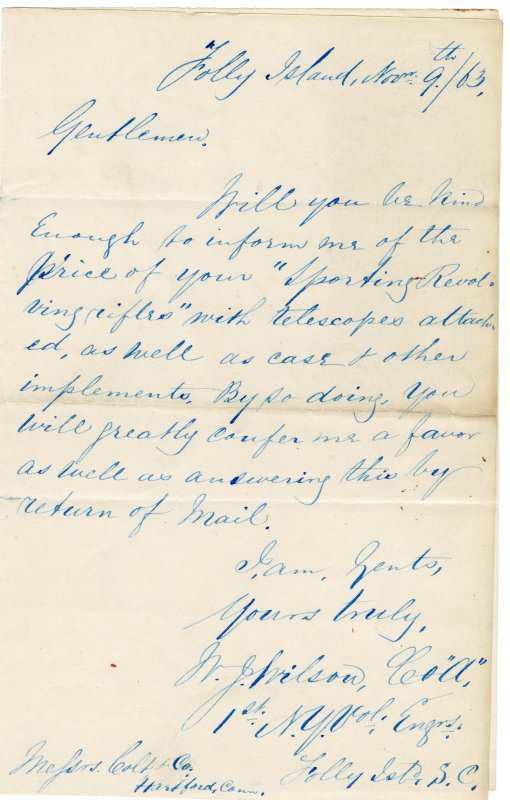 Folly Island, Novr. 9th/63,
Gentlemen.
Will you be kind
Enough to inform me of the
Price of your "Sporting Revol-
ving rifles" with telescopes attach-
ed, as well as case & other
implements. By so doing, you
will greatly confer me a favor
as well as answering this by
return of Mail.
I am, Gents,
Yours truly,
W. J. Wilson, Co "A",
1st. N.Y. Vol. Engrs.
Folly Isld, S. C.
Messrs. Colt & Co.
Hartford, Conn.